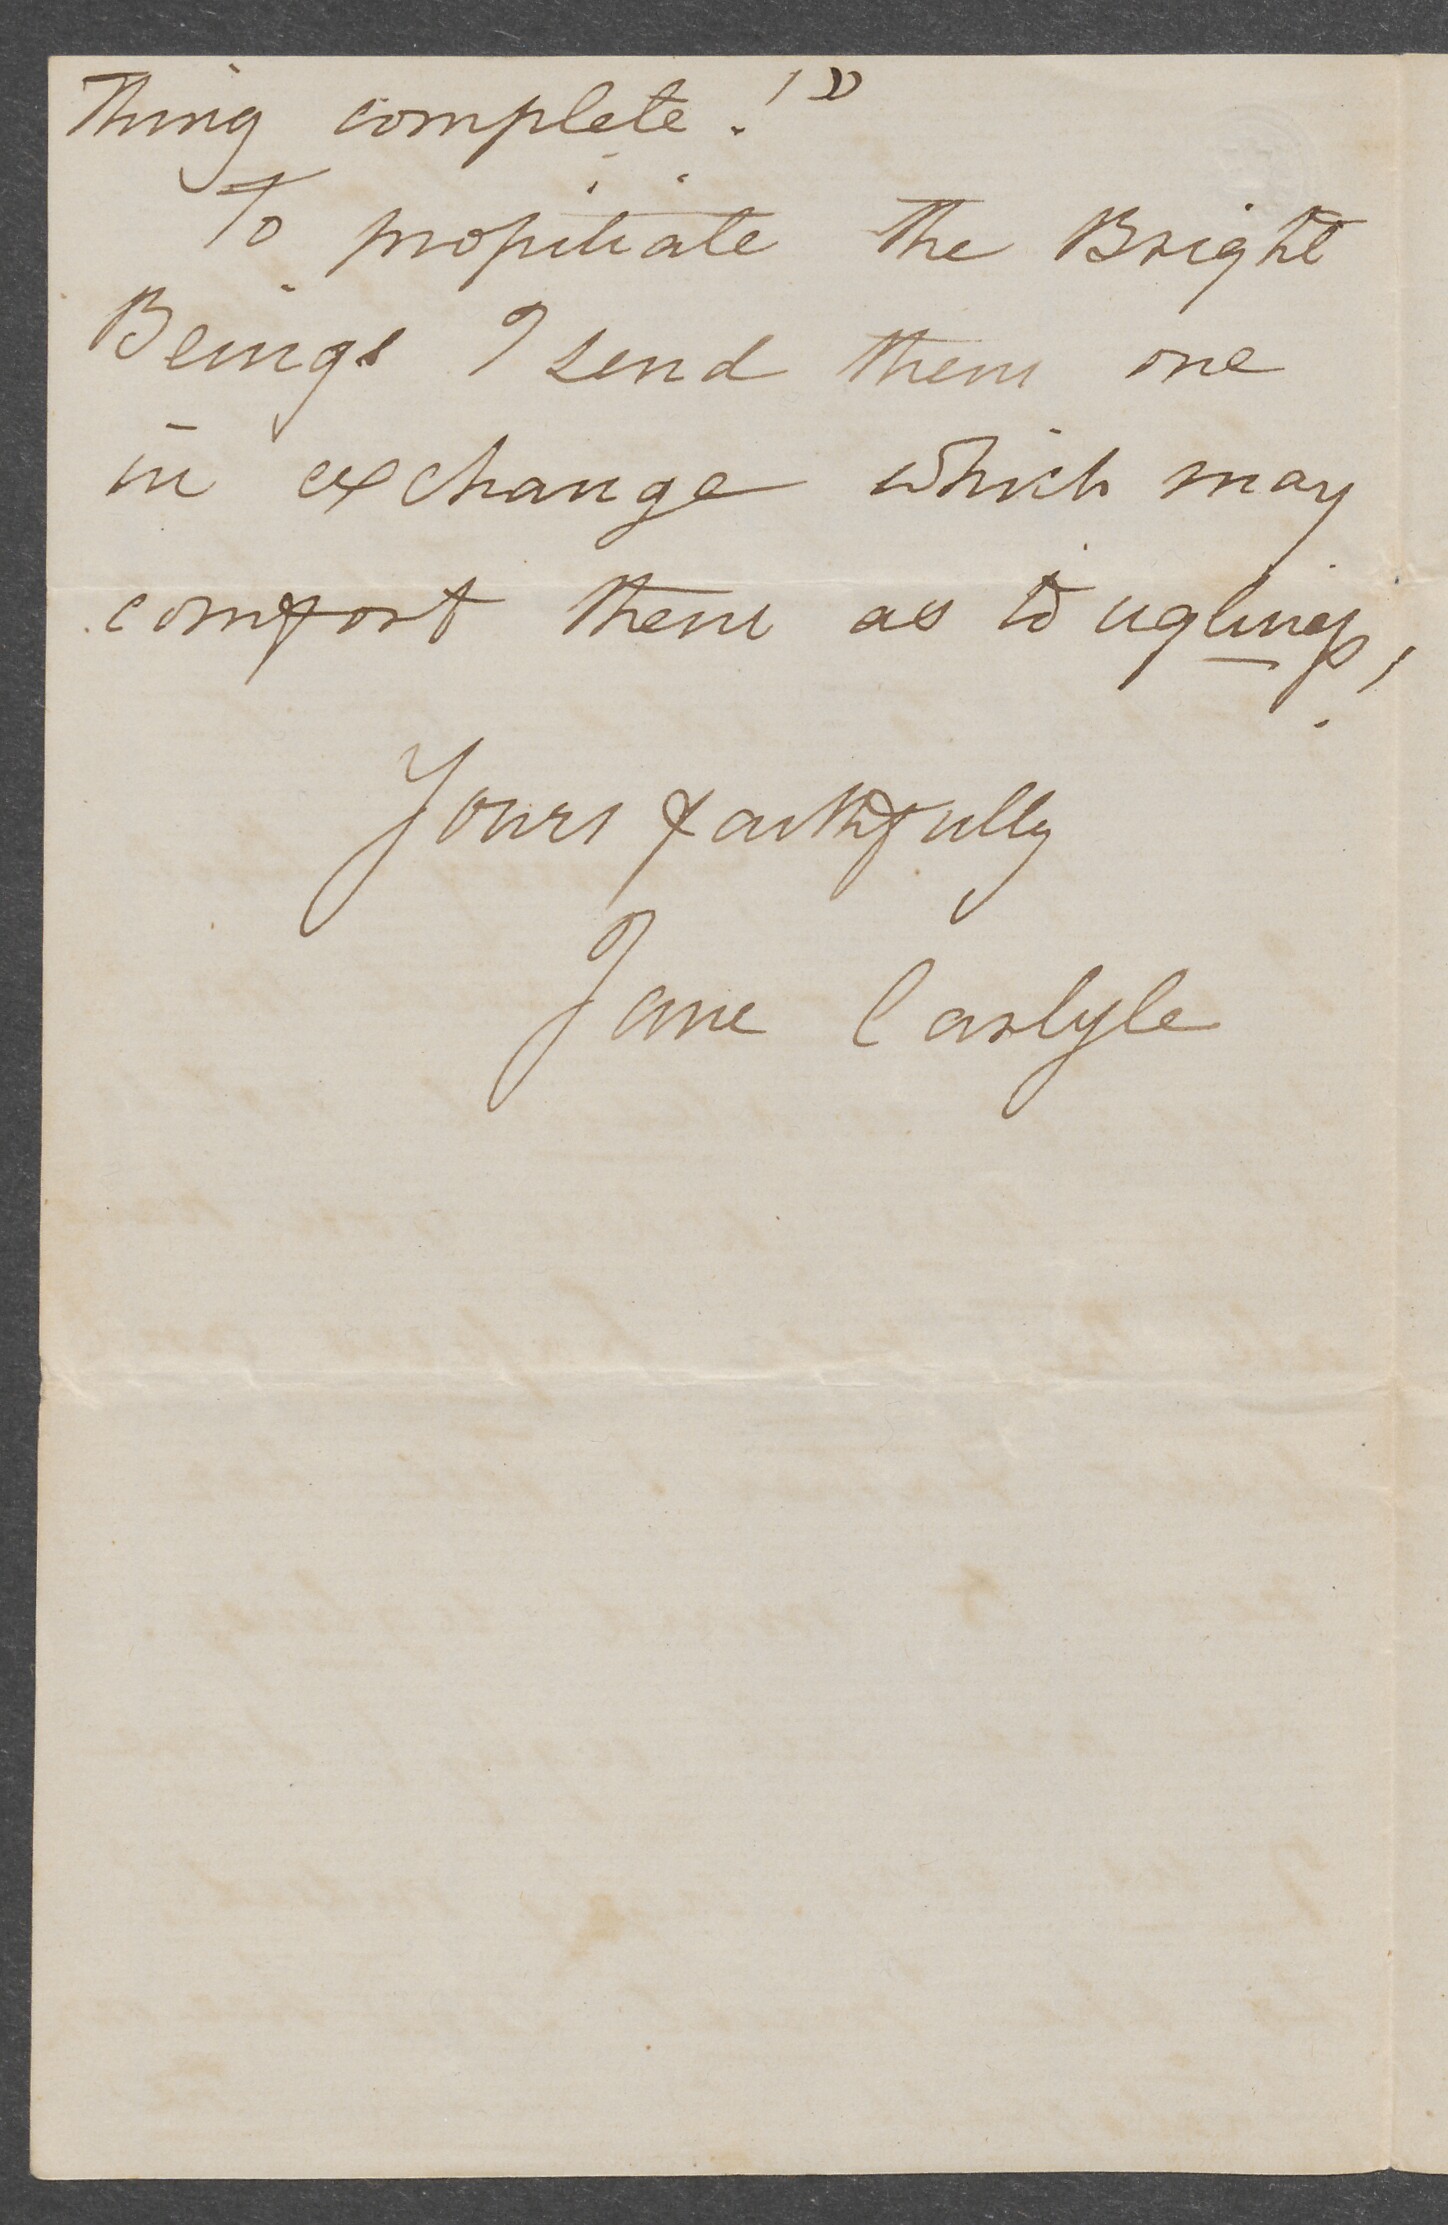 thing complete!"
To propitiate the Bright
Beings I send them one
in exchange which may
comfort them as to ugliness!
Yours faithfully
Jane Carlyle